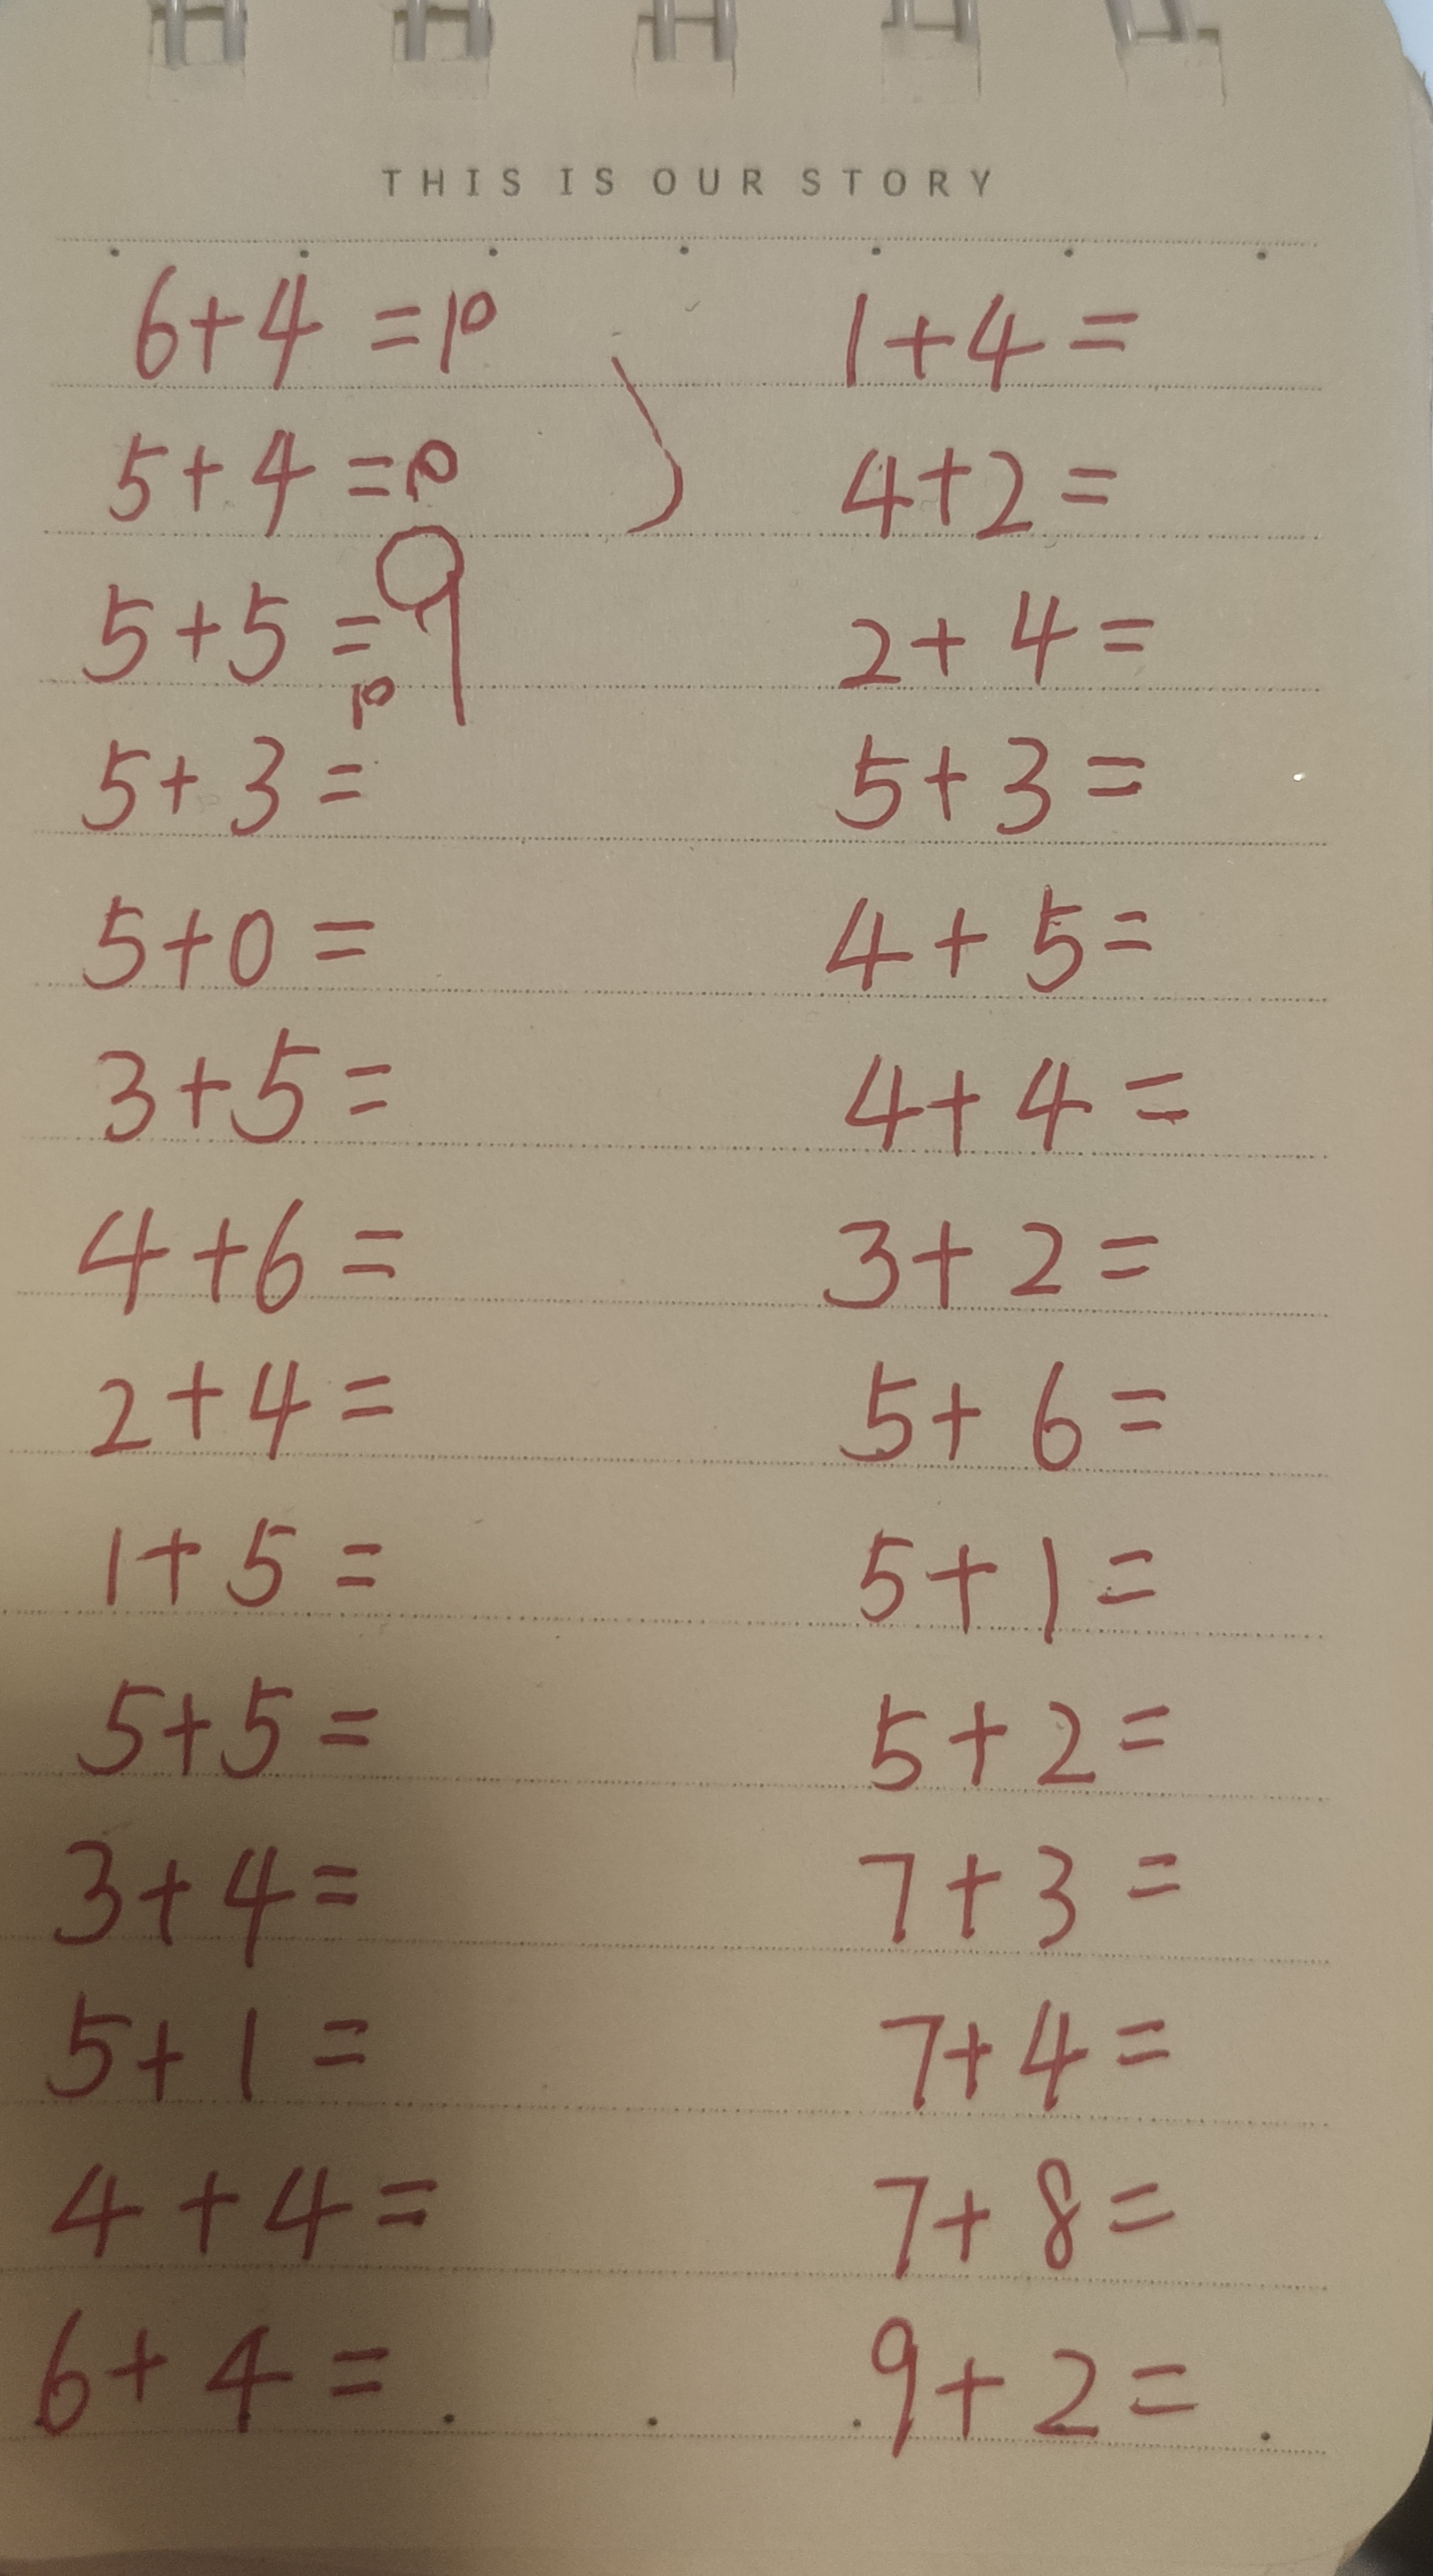 THIS IS OUR STORY
6+4=10 1+4=
5+4=10 4+2=
9
5+5=10 2+4=
5+3= 5+3=
5+0= 4+5=
3+5= 4+4=
4+6= 3+2=
2+4= 5+6=
1+5= 5+1=
5+5= 5+2=
3+4= 7+3=
5+1= 7+4=
4+4= 7+8=
6+4= 9+2=